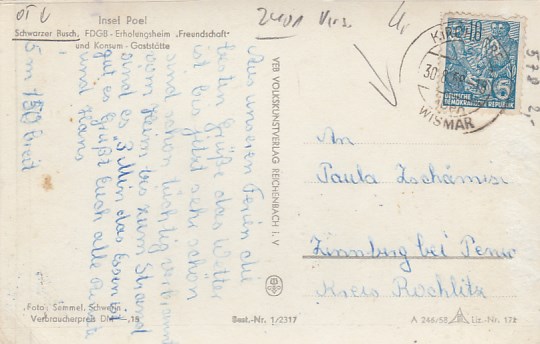 OT U
2401 Vers.
Insel Poel
Schwarzer Busch, FDGB-Erholungsheim „Freundschaft"
und Konsum-Gaststätte
Aus unseren Ferien die
besten Grüße das Wetter
ist bis jetzt sehr schön
sind schon tüchtig verbrannt
vom Heim bis zum Strand
sind es 3 Min das Essen ist
gut es grüßt Euch alle
und Hans
5 m 150 breit
VEB VOLKSKUNSTVERLAG REICHENBACH I. V.
KIRCHDORF
30.8.58
WISMAR
DEUTSCHE
DEMOKRATISCHE REPUBLIK
5
An
Paula
Zinnberg bei Penig
Kreis Rochlitz
Foto: Semmel, Schwerin
Verbraucherpreis DM —,18
Best.-Nr. 1/2317
A 246/58
Liz.-Nr. 172